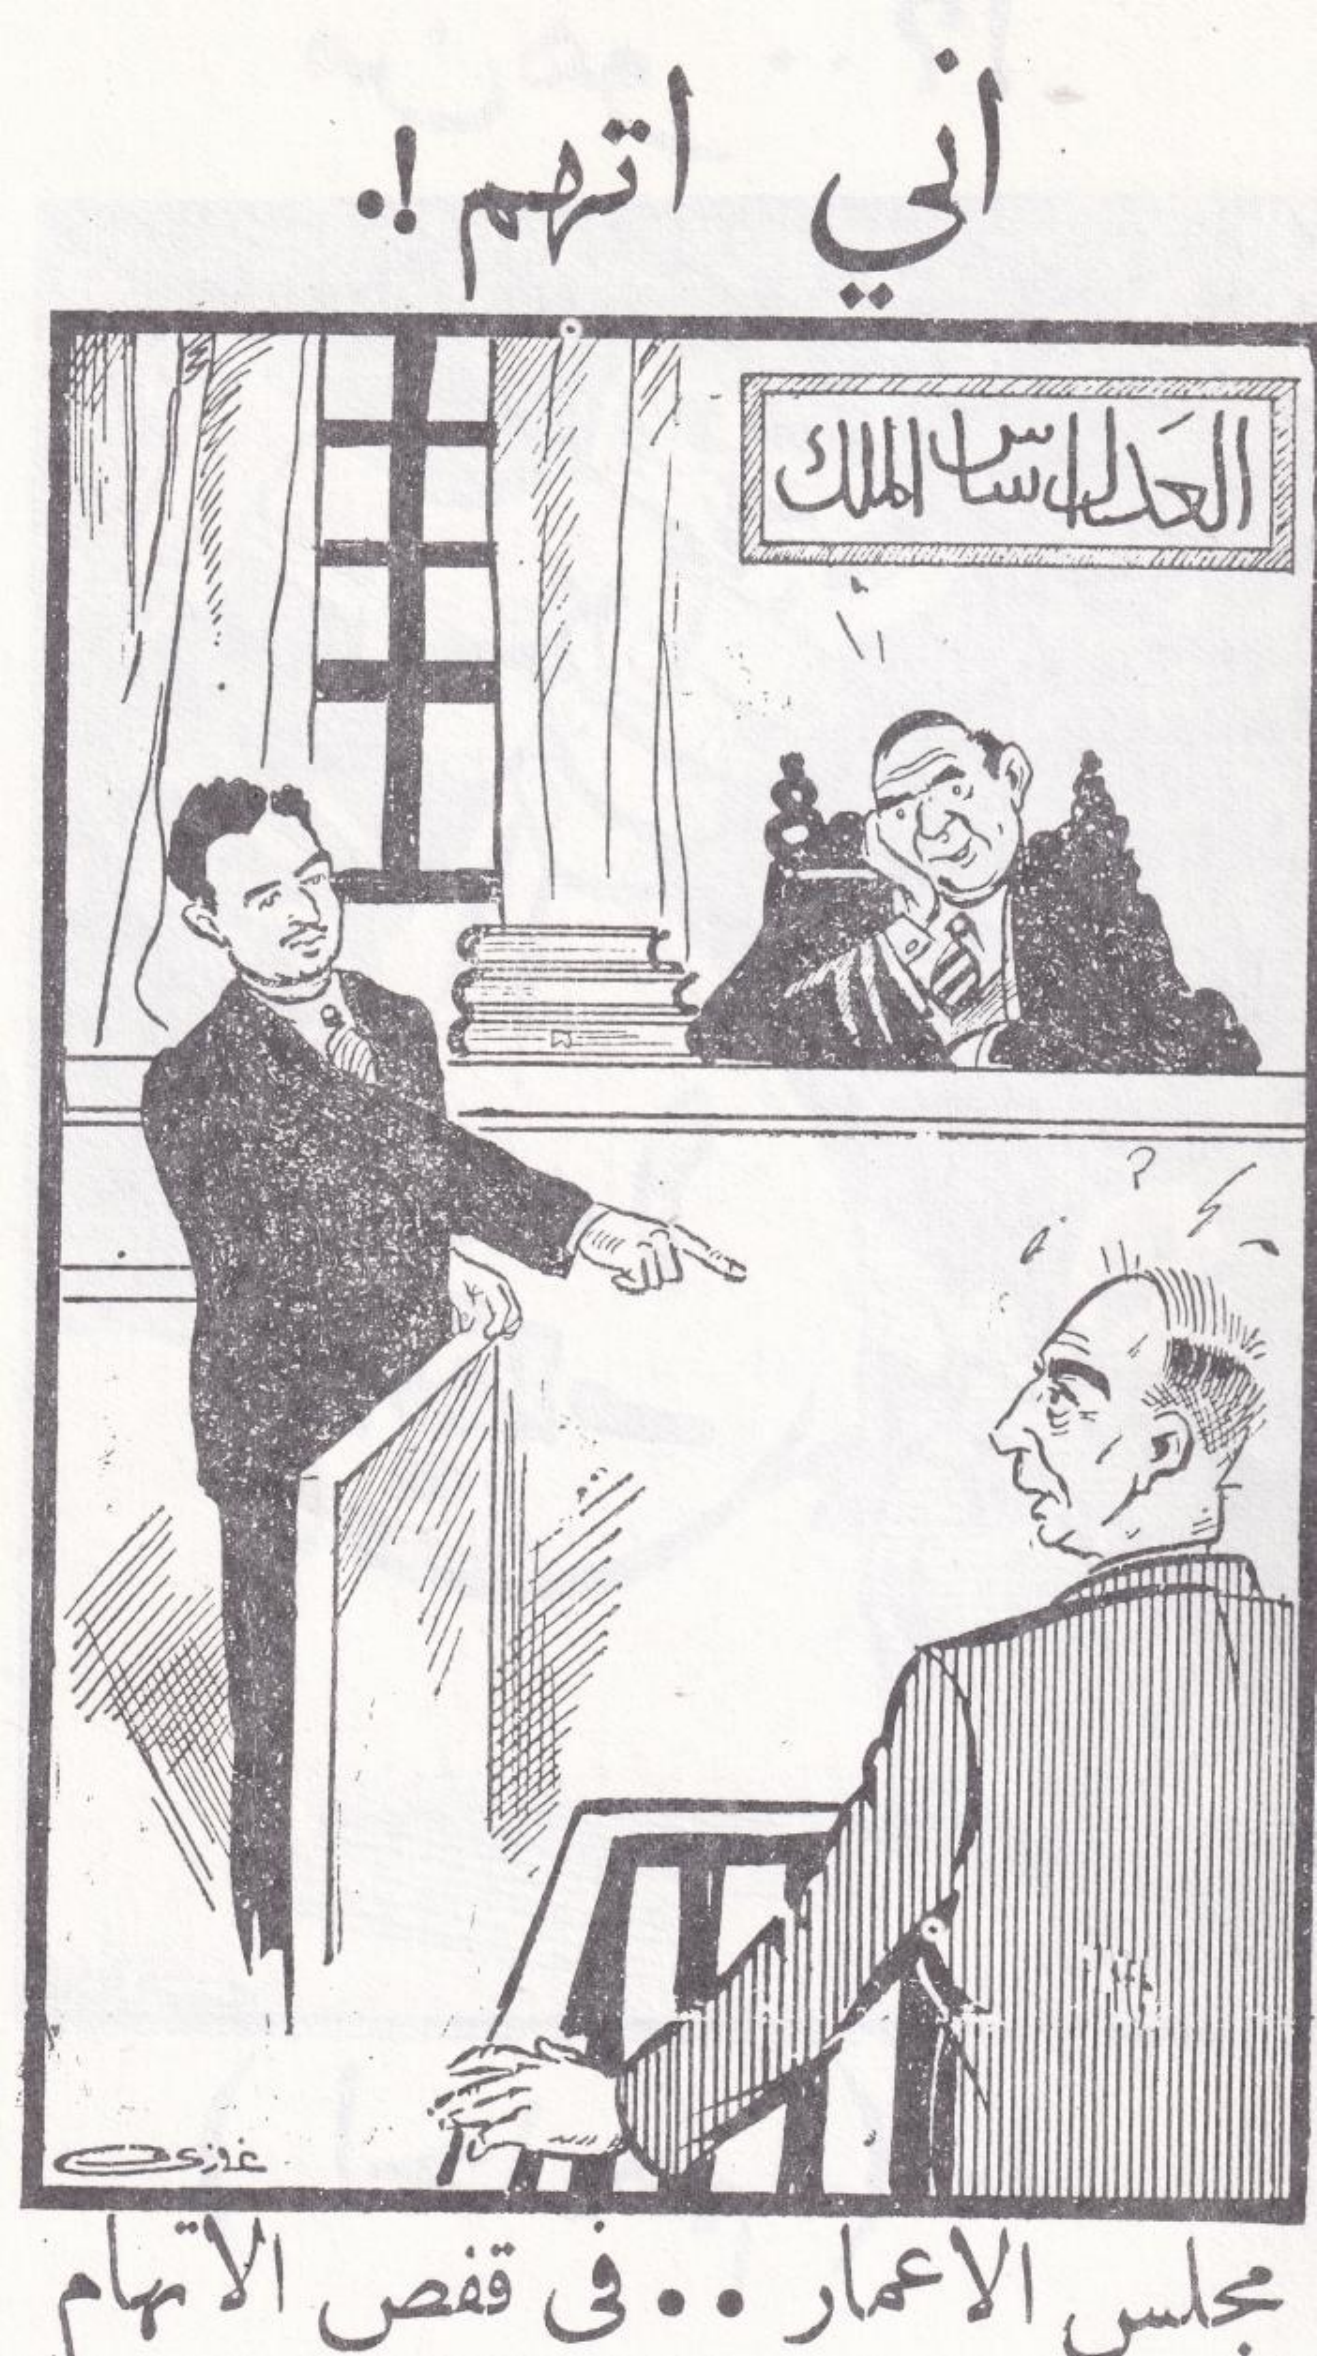 اني اتهم !.
العَدل اساس الملك
؟
غازي
مجلس الاعمار .. فى قفص الاتهام